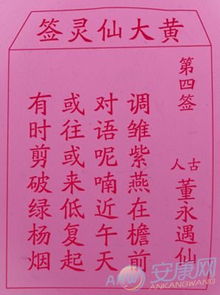 黄大仙灵签
第四签
古人 董永遇仙
调雏紫燕在檐前
对语呢喃近午天
或往或来低复起
有时剪破绿杨烟
安康网
ANKANGWANG